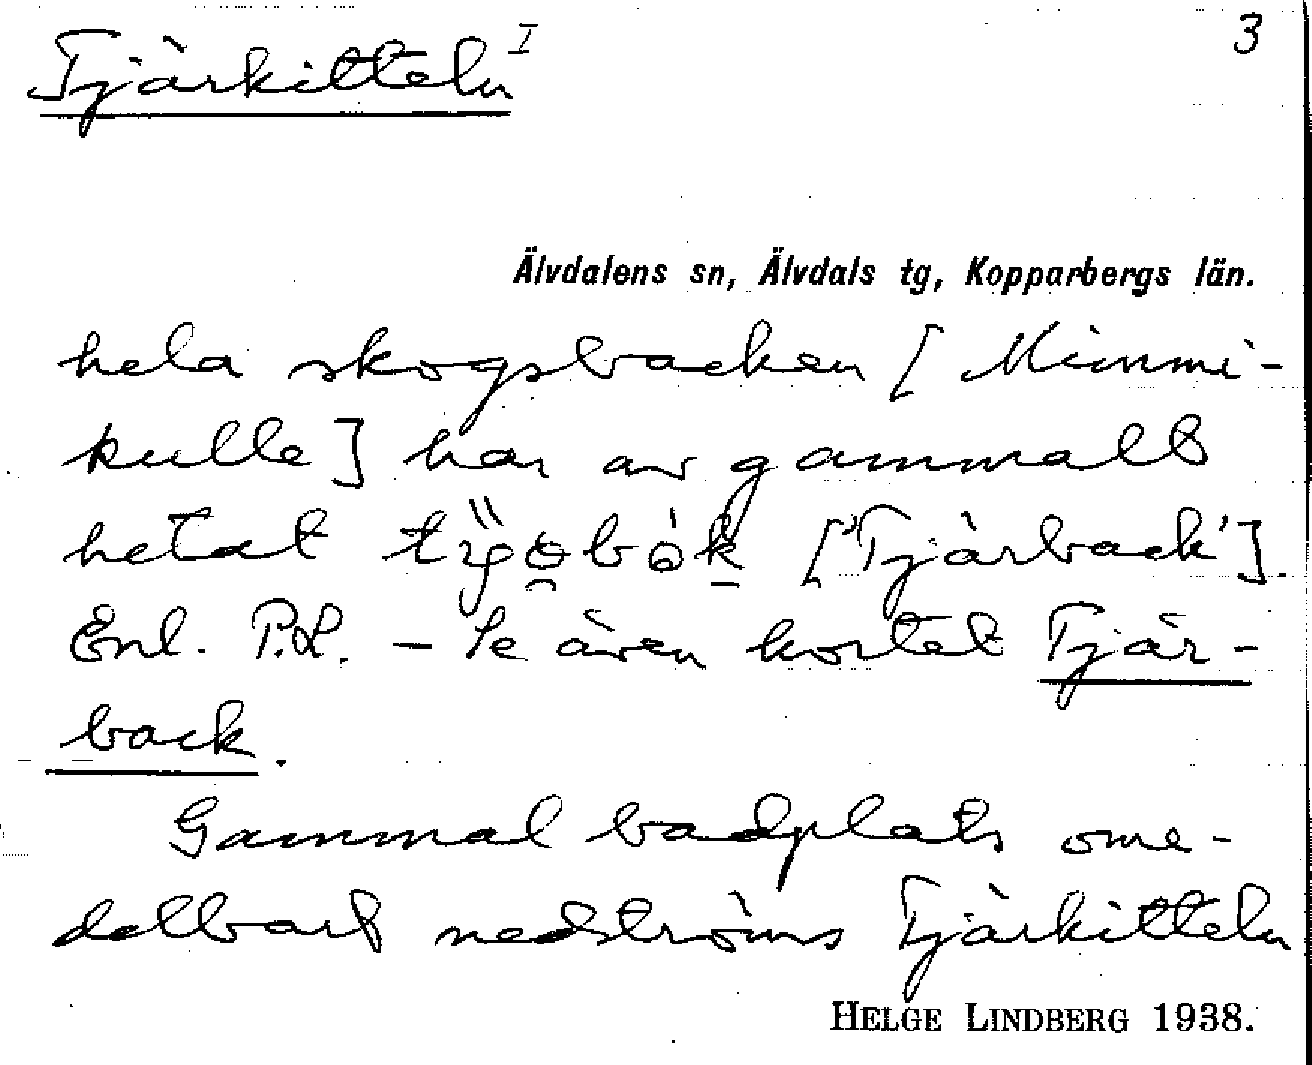 Tjärkitteln I 3
Älvdalens sn, Älvdals tg, Kopparbergs län.
hela skogsbacken [Mimmi-
kulle] har av gammalt
hetat ['Tjärback'].
Enl. P.L. – Se även kortet Tjär-
back.
Gammal badplats ome-
delbart nedströms Tjärkitteln
HELGE LINDBERG 1938.